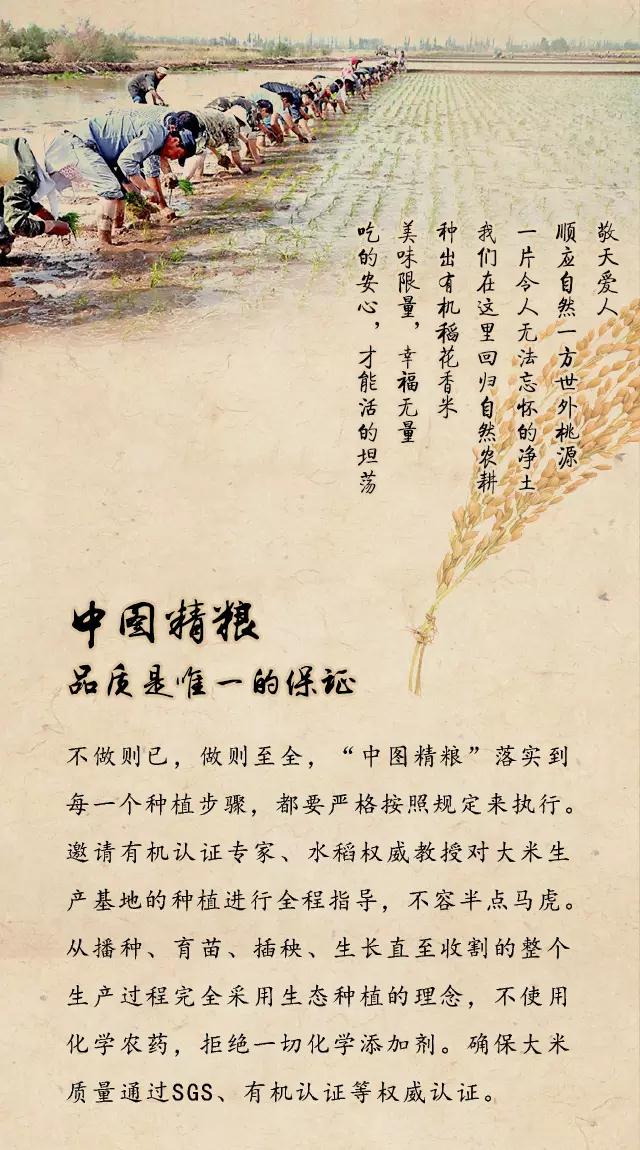 敬天爱人
顺应自然一方世外桃源
一片令人无法忘怀的净土
我们在这里回归自然农耕
种出有机稻花香米
美味限量，幸福无量
吃的安心，才能活的坦荡
中图精粮
品质是唯一的保证
不做则已，做则至全，“中图精粮”落实到
每一个种植步骤，都要严格按照规定来执行。
邀请有机认证专家、水稻权威教授对大米生
产基地的种植进行全程指导，不容半点马虎。
从播种、育苗、插秧、生长直至收割的整个
生产过程完全采用生态种植的理念，不使用
化学农药，拒绝一切化学添加剂。确保大米
质量通过SGS、有机认证等权威认证。